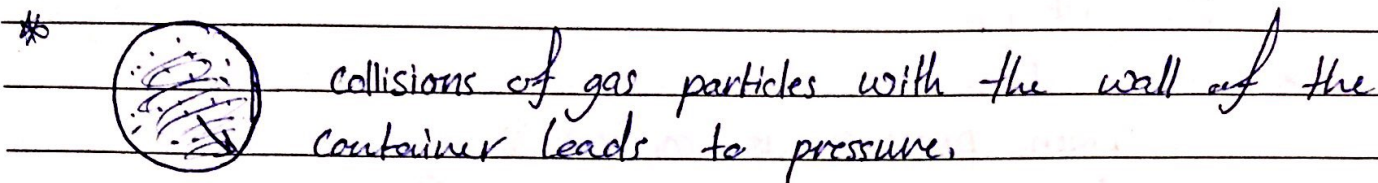 * collisions of gas particles with the wall of the
container leads to pressure.